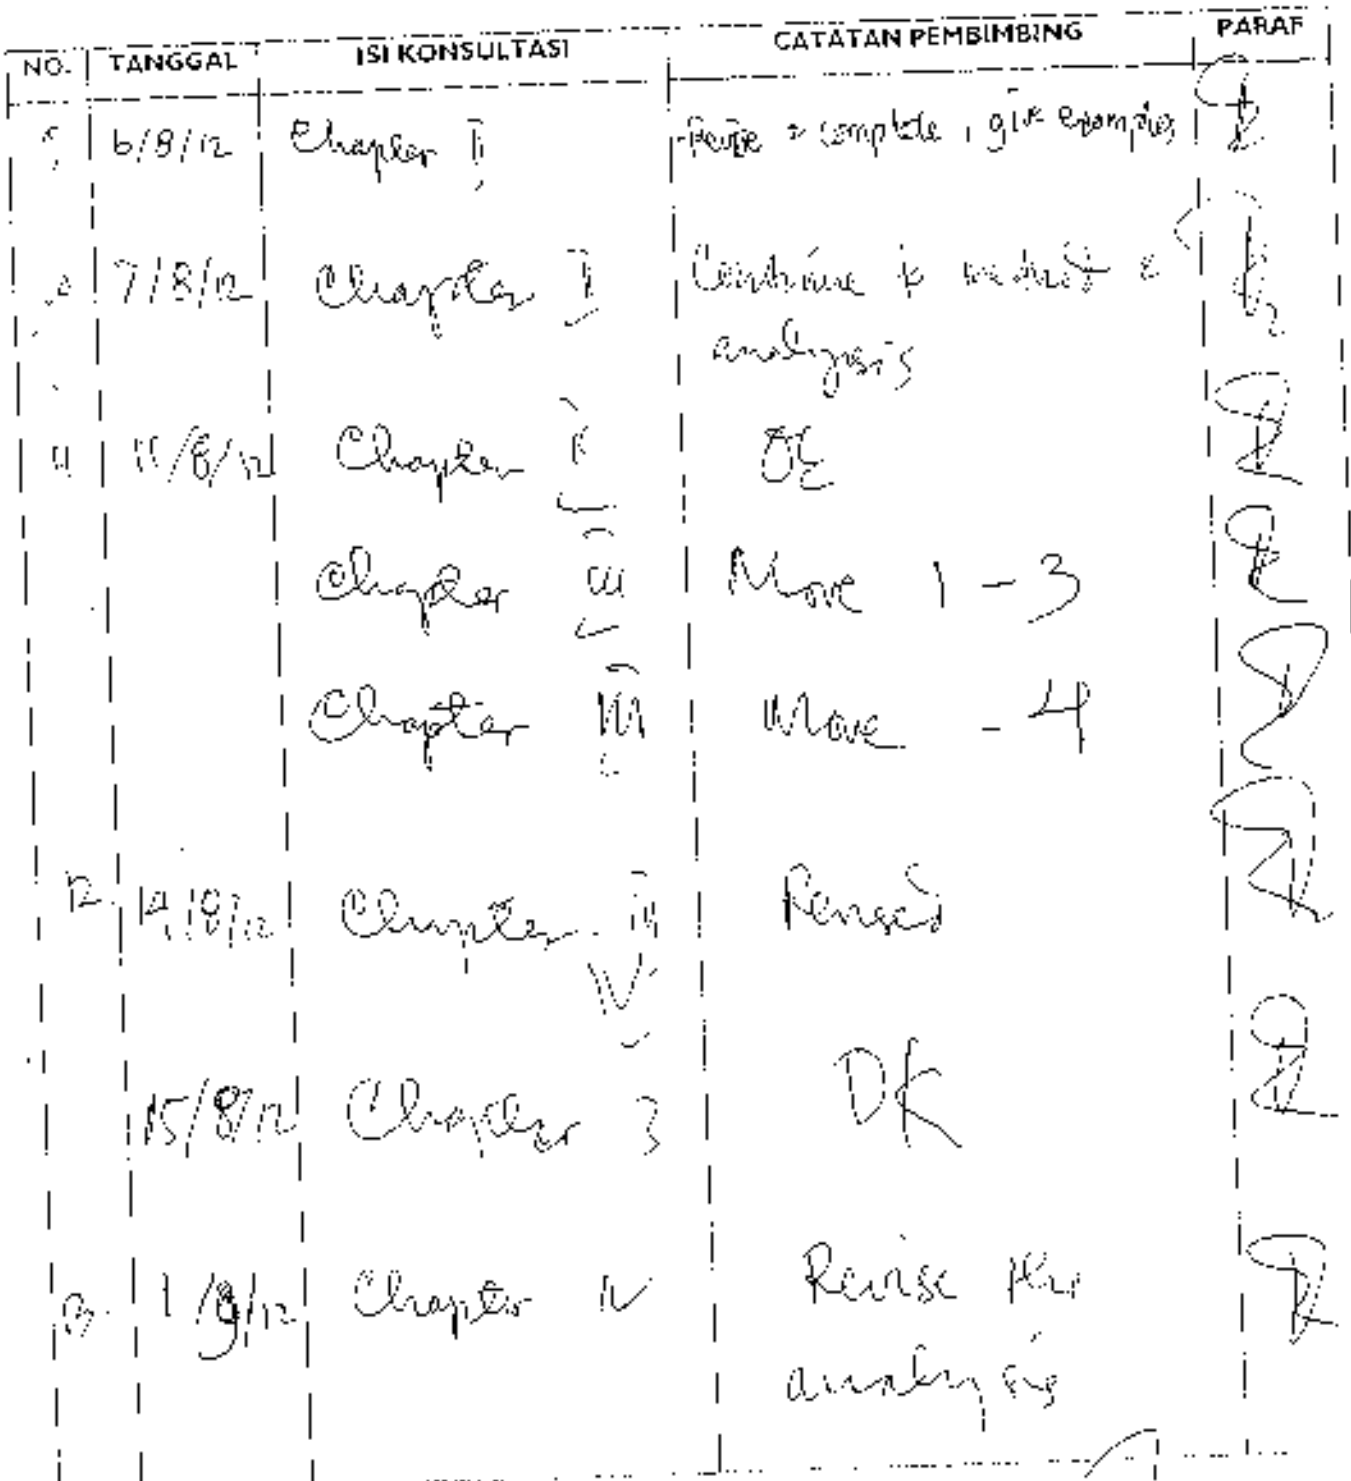 NO. TANGGAL ISI KONSULTASI CATATAN PEMBIMBING PARAF
6/8/12 Chapter II Revise & complete, give examples
7/8/12 Chapter II Continue to &
analysis
11 11/8/12 Chapter II OK
Chapter III Move 1 - 3
Chapter III Move - 4
12. 14/8/12 Chapter III Revised
IV
15/8/12 Chapter 3 OK
13. 1/9/12 Chapter IV Revise the
analysis